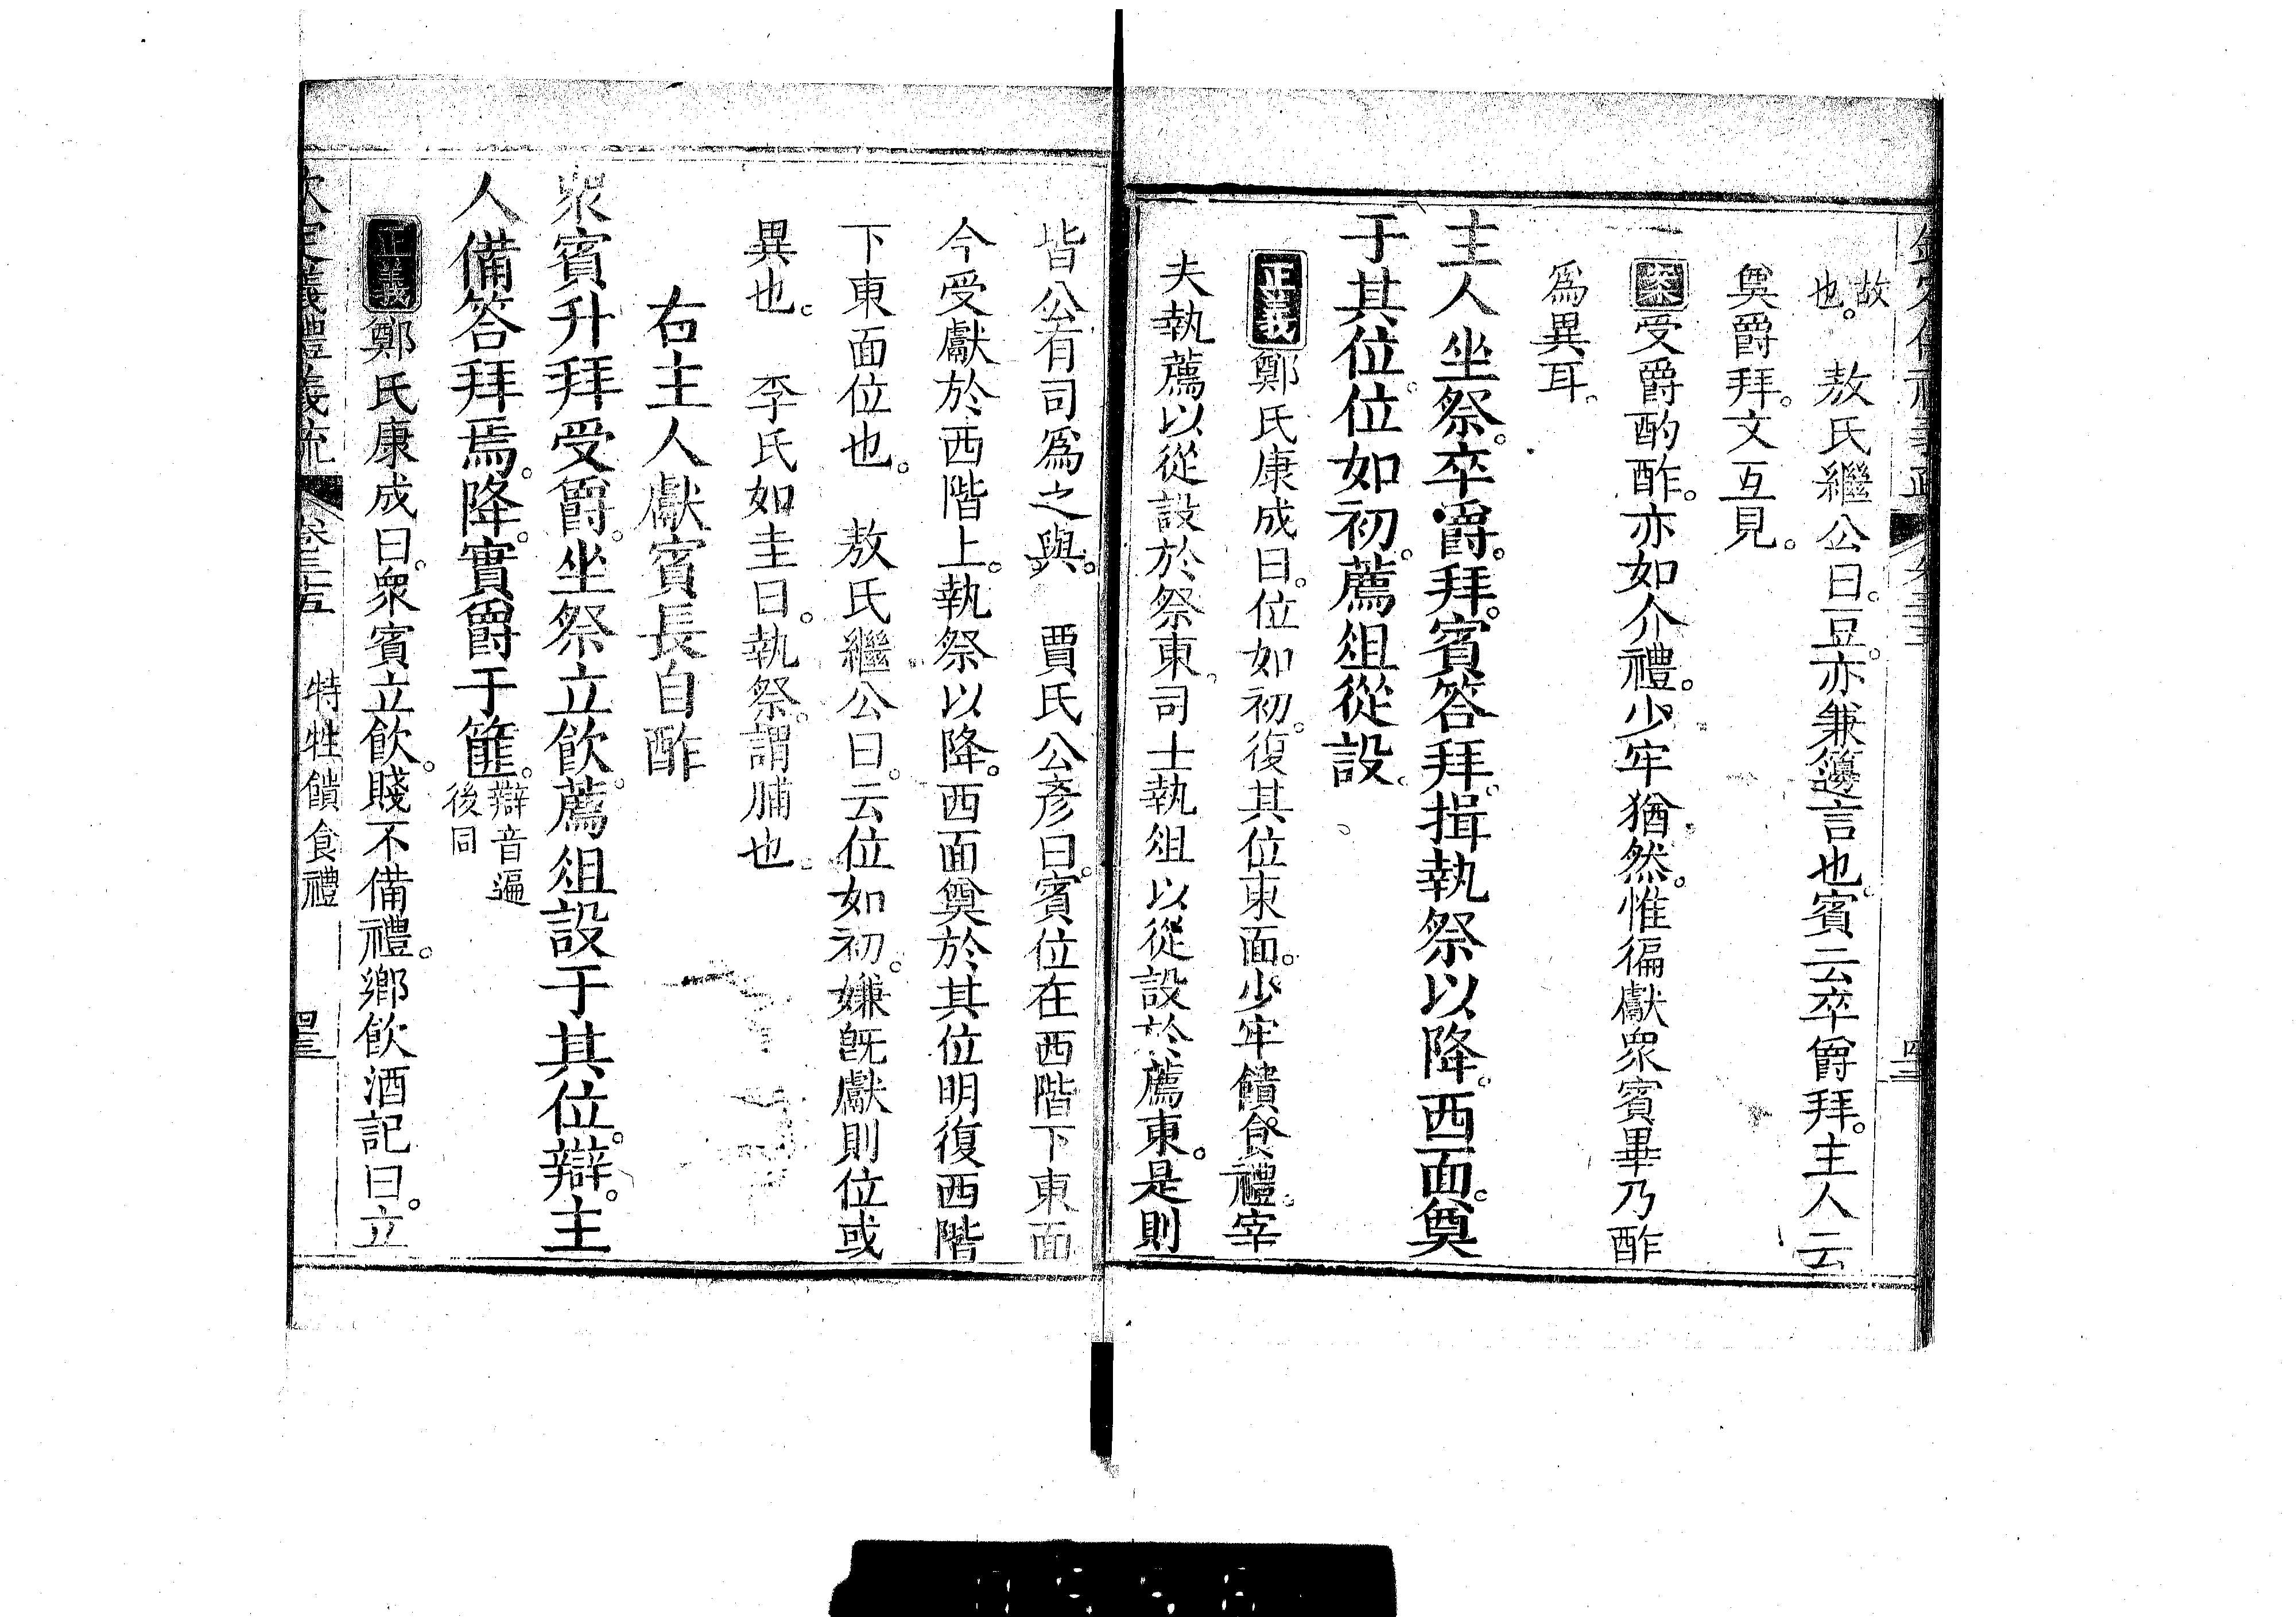 故
也。　敖氏繼公曰。豆。亦兼籩言也。賓云卒爵拜。主人云
奠爵拜。文互見。
案受爵酌酢。亦如介禮。少牢猶然。惟徧獻眾賓畢乃酢
爲異耳。
主人坐祭。卒爵。拜。賓答拜。揖執祭以降。西面。奠
于其位。位如初。薦俎從設。
正義鄭氏康成曰。位如初。復其位東面。少牢饋食禮。宰
夫執薦以從設於祭東。司士執俎以從設於薦東。是則
皆公有司爲之與。　賈氏公彥曰。賓位在西階下東面
今受獻於西階上。執祭以降。西面奠於其位明復西階
下東面位也。　敖氏繼公曰。云位如初。嫌旣獻則位或
異也。　李氏如圭曰。執祭。謂脯也。
右主人獻賓長自酢
眾賓升拜受爵。坐祭立飮。薦俎設于其位。辯。主
人備答拜焉。降。實爵于篚。辯音遍
後同
正義鄭氏康成曰。眾賓立飮。賤不備禮。鄉飮酒記曰。立
欽定儀禮義疏　卷三十五　特牲饋食禮　四三